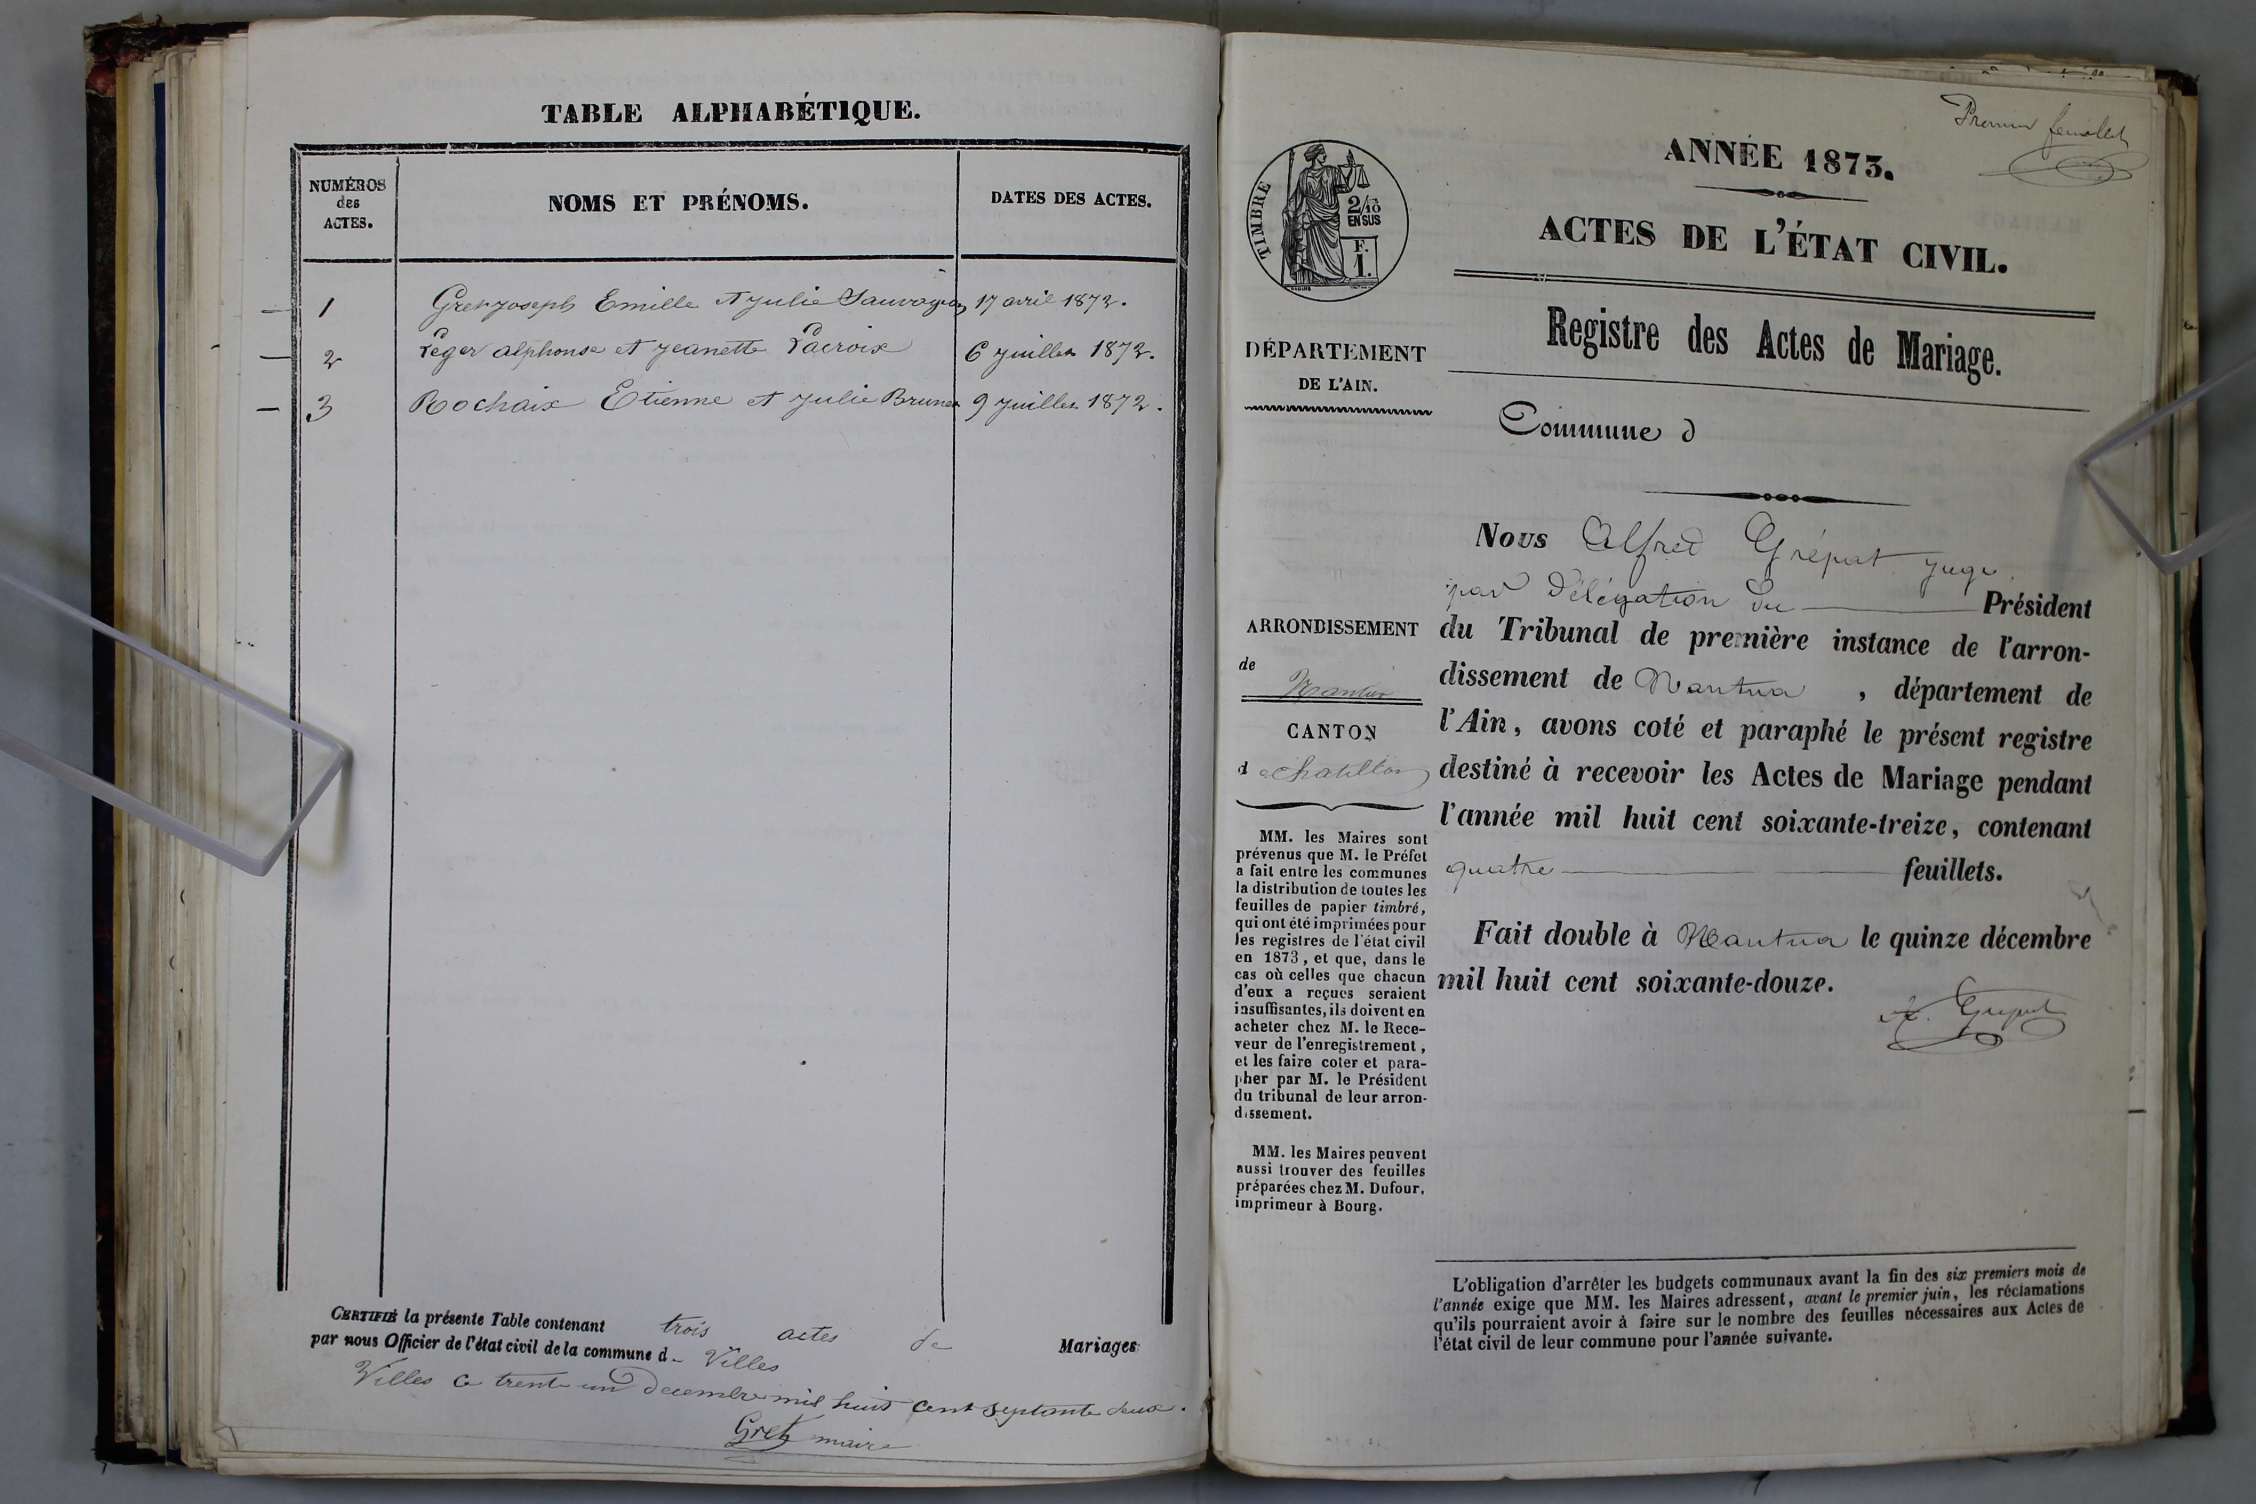 TABLE ALPHABÉTIQUE.
NUMÉROS
des
ACTES.
NOMS ET PRÉNOMS.
DATES DES ACTES.
1 Gret joseph Emille et Julie Sauvageon 17 avril 1872.
2 Léger alphonse et jeanette Lacroix 6 juillet 1872.
3 Rochaix Etienne et Julie Brunet 9 juillet 1872.
CERTIFIÉ la présente Table contenant trois actes de Mariages
par nous Officier de l'état civil de la commune d. Villes
Villes ce trente un decembre mil huit cent septante deux.
Gret maire
Premier feuillet
ANNÉE 1873.
ACTES DE L'ÉTAT CIVIL.
Registre des Actes de Mariage.
TIMBRE
2/10
EN SUS
F.
1.
DÉPARTEMENT
DE L'AIN.
Commune d
ARRONDISSEMENT
de
Nantua
CANTON
d e Chatillon
MM. les Maires sont
prévenus que M. le Préfet
a fait entre les communes
la distribution de toutes les
feuilles de papier timbré,
qui ont été imprimées pour
les registres de l'état civil
en 1873, et que, dans le
cas où celles que chacun
d'eux a reçues seraient
insuffisantes, ils doivent en
acheter chez M. le Rece-
veur de l'enregistrement,
et les faire coter et para-
pher par M. le Président
du tribunal de leur arron-
dissement.
MM. les Maires peuvent
aussi trouver des feuilles
préparées chez M. Dufour,
imprimeur à Bourg.
Nous Alfred Grépat juge
par Délégation du Président
du Tribunal de première instance de l'arron-
dissement de Nantua, département de
l'Ain, avons coté et paraphé le présent registre
destiné à recevoir les Actes de Mariage pendant
l'année mil huit cent soixante-treize, contenant
quatre feuillets.
Fait double à Nantua le quinze décembre
mil huit cent soixante-douze.
A. Grépat
L'obligation d'arrêter les budgets communaux avant la fin des six premiers mois de
l'année exige que MM. les Maires adressent, avant le premier juin, les réclamations
qu'ils pourraient avoir à faire sur le nombre des feuilles nécessaires aux Actes de
l'état civil de leur commune pour l'année suivante.